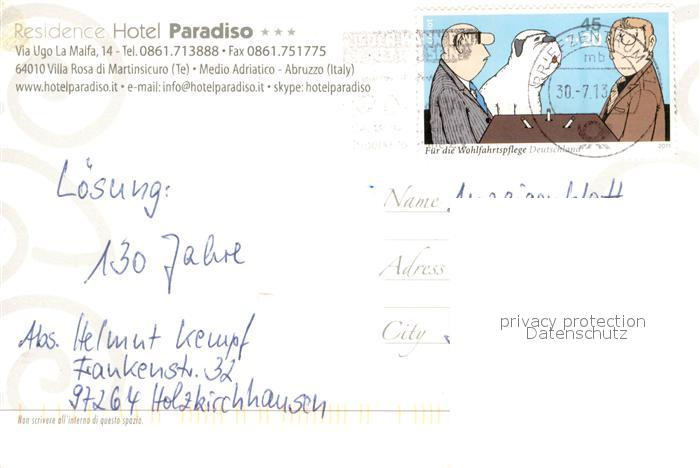 Residence Hotel Paradiso ★★★
Via Ugo La Malfa, 14 • Tel. 0861.713888 • Fax 0861.751775
64010 Villa Rosa di Martinsicuro (Te) • Medio Adriatico - Abruzzo (Italy)
www.hotelparadiso.it • e-mail: info@hotelparadiso.it • skype: hotelparadiso
45
30.-7.13
Für die Wohlfahrtspflege Deutschland
2011
Lösung:
130 Jahre
Abs. Helmut Kempf
Frankenstr. 32
97264 Holzkirchhausen
Name
Adress
City
privacy protection
Datenschutz
Non scrivere all'interno di questo spazio.